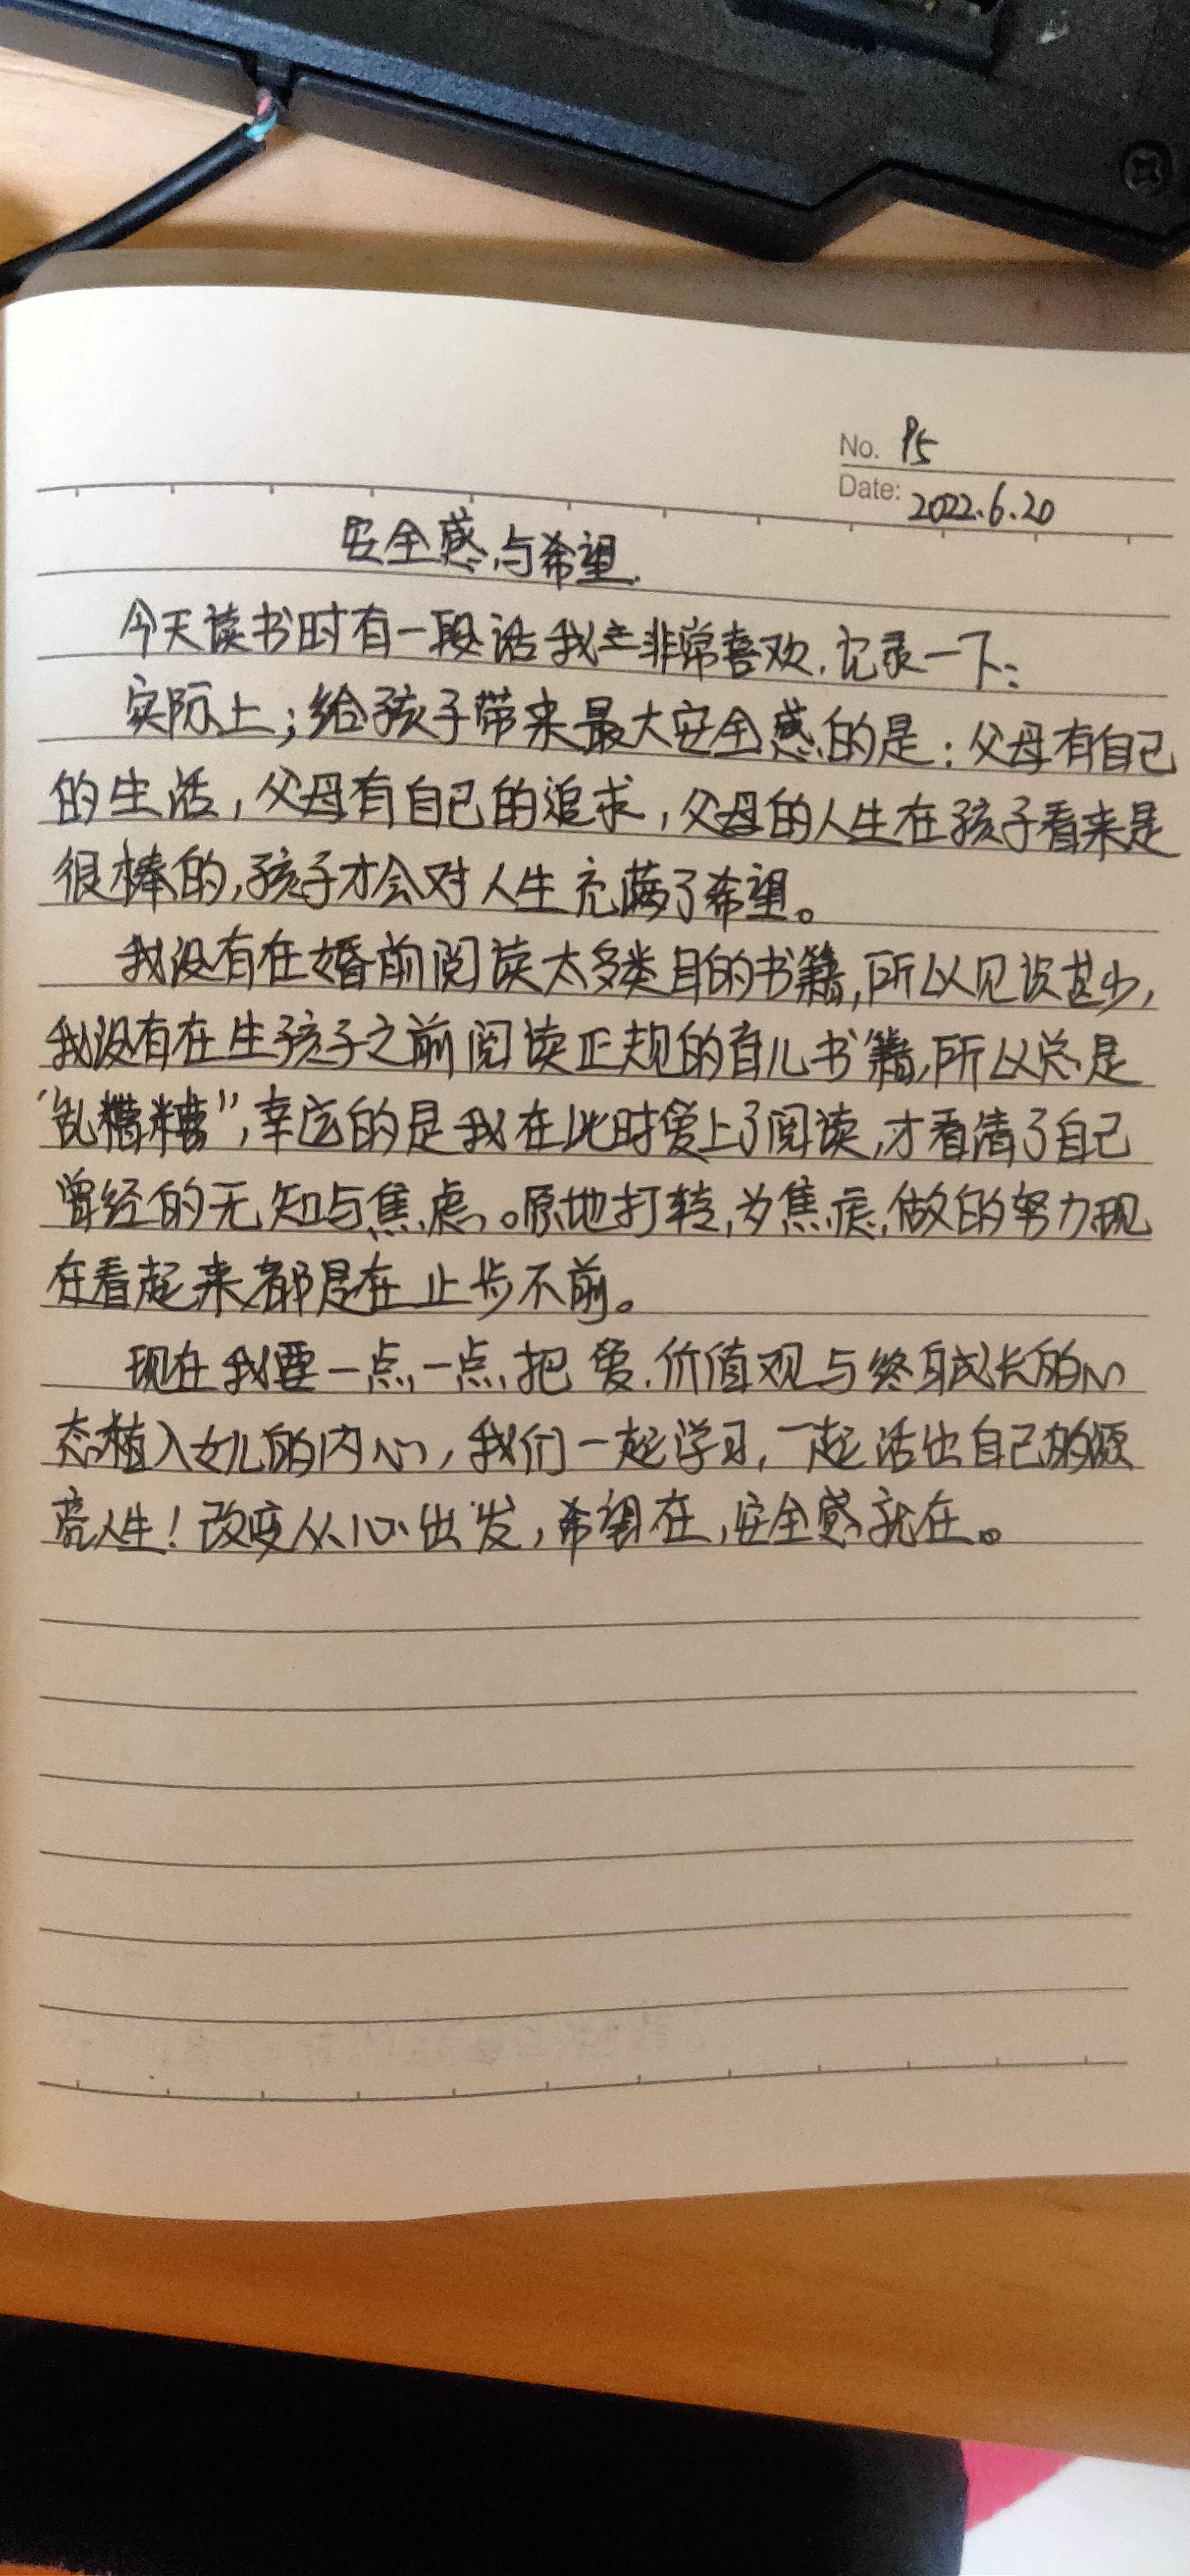 No. P5
Date: 2022.6.20
安全感与希望.
今天读书时有一段话我非常喜欢.记录一下:
实际上;给孩子带来最大安全感的是:父母有自己
的生活,父母有自己的追求,父母的人生在孩子看来是
很棒的,孩子才会对人生充满了希望。
我没有在婚前阅读太多类目的书籍,所以见识甚少,
我没有在生孩子之前阅读正规的育儿书籍,所以总是
"乱糟糟",幸运的是我在此时爱上了阅读,才看清了自己
曾经的无知与焦虑。原地打转,为焦虑,做的努力现
在看起来都是在止步不前。
现在我要一点一点把爱.价值观与终身成长的心
态植入女儿的内心,我们一起学习,一起活出自己的
人生!改变从心出发,希望在,安全感就在。